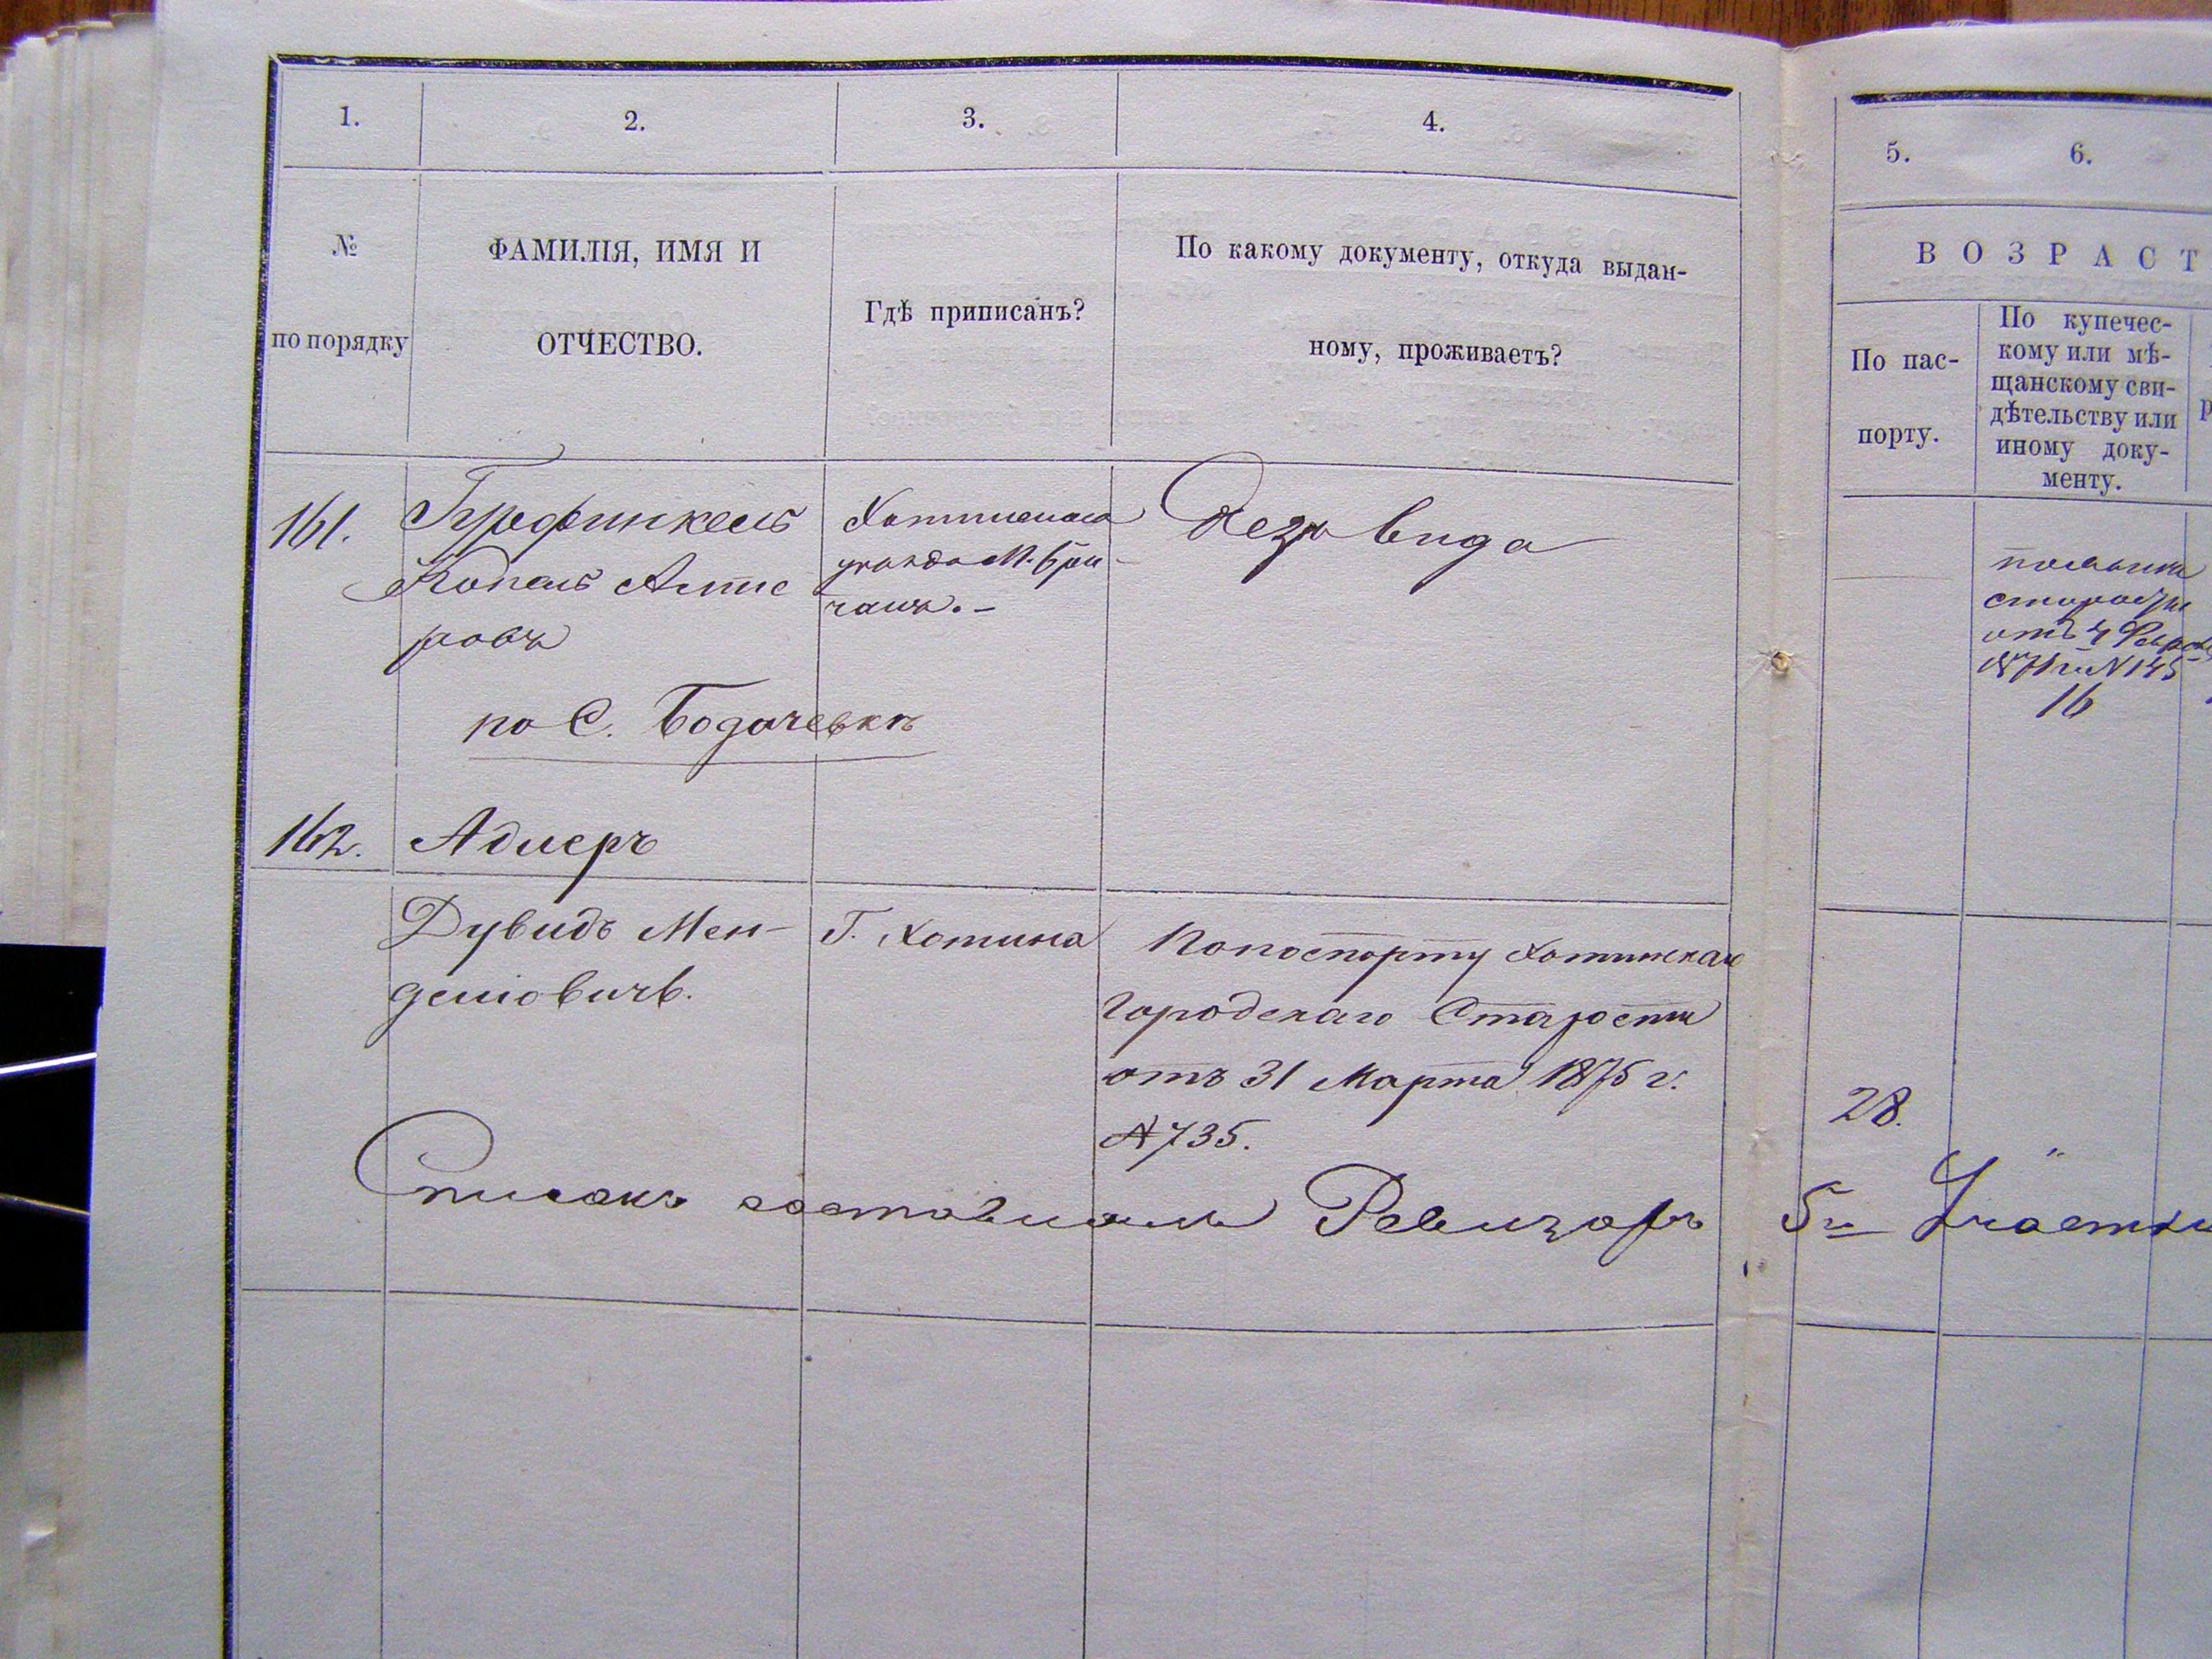 1.
2.
3.
4.
5.
6.
№
по порядку
ФАМИЛІЯ, ИМЯ И
ОТЧЕСТВО.
Гдѣ приписанъ?
По какому документу, откуда выдан-
ному, проживаетъ?
ВОЗРАСТ
По пас-
порту.
По купечес-
кому или мѣ-
щанскому сви-
дѣтельству или
иному доку-
менту.
161.
Гурфинкель
Копель Алте
ровъ
Хотинскаго
уѣзда М. Бри
чанъ. –
Безъ вида
отъ 4
№ 145
16
по С. Бодачевкѣ
162.
Адлеръ
Дувидъ Мен-
деліовичъ.
Г. Хотина
По паспорту Хотинскаго
Городскаго Старосты
отъ 31 Марта 1875 г.
№ 735.
28.
Списокъ составилъ Ревизоръ 5го Участка